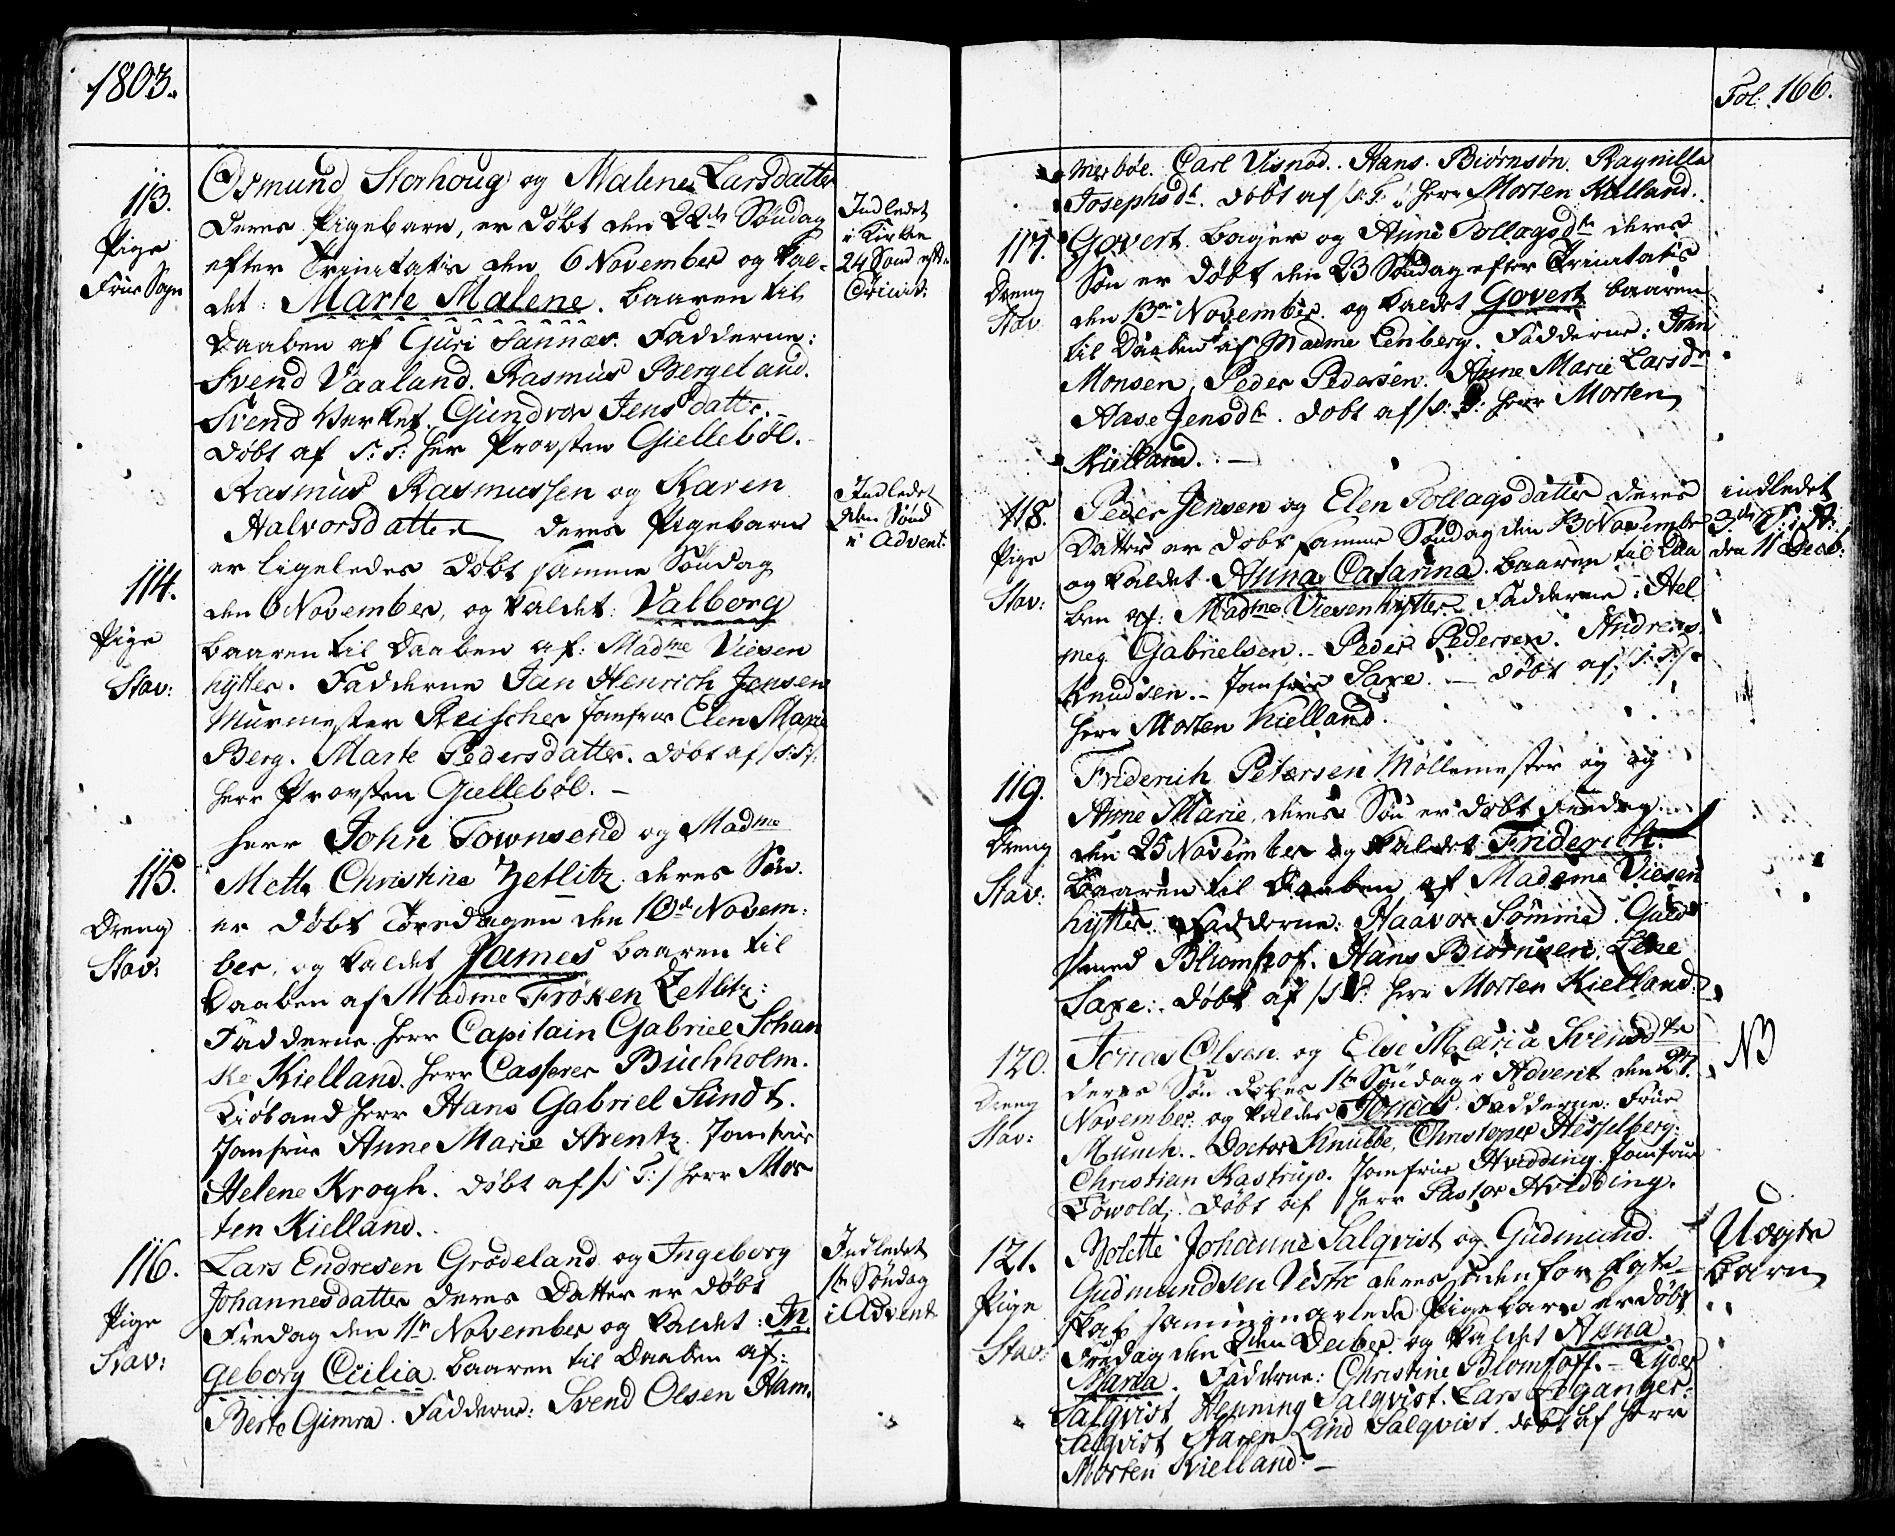 1803.
113.
Pige
Frue Sogn
Osmund Storhoug og Malene Larsdatter
deres Pigebarn, er døbt den 22de Søndag
efter Trinitatis den 6 November og kal-
det: Marte Malene. baaren til
Daaben af Guri Sannæs. Fadderne:
Svend Vaaland. Rasmus Bergeland.
Svend Verket. Gundvor Jens datter.
døbt af S: T: Her Provsten Giellebøl.
Indledet
i Kirken
24 Sønd eft
Trinit:
114.
Pige
Stav:
Rasmus Rasmussen og Karen
Halvorsdatter deres Pigebarn
er ligeledes døbt samme Søndag
den 6 November, og kaldet: Valborg
baaren til Daaben af: Madme Viesen
hytter. Fadderne Jan Henrich Jensen
Murmester Reischer Jomfrue Elen Marie
Berg. Marte Pedersdatter. døbt af /S:T:/
Herr Provsten Giellebøl.
Indledet
den Sønd
i Advent:
115.
Dreng
Stav:
Herr John Townsend og Madme
Mette Christine Zetlitz deres Søn
er døbt Torsdagen den 10de Novem:
ber, og kaldet James baaren til
Daaben af Madme Frøken Zetlitz:
Fadderne. Herr Capitain Gabriel Schan
ke Kielland. Herr Casper Buchholm.
Kiøbmand Herr Hans Gabriel Sundt.
Jomfrue Anne Marie Arentz. Jomfrue
Helene Krogh. døbt af /S T:/ Herr Mor
ten Kielland.
116.
Pige
Stav:
Lars Endresen Grødeland og Ingeborg
Johannesdatter deres Datter er døbt
Fredag den 11te November og kaldet: In
geborg Cicilia baaren til Daaben af:
Berte Gimra. Fadderne: Svend Olsen Ham.
Indledet
1te Søndag
i Advent
Fol. 166.
merbøe. Carl Visnod. Hans Biørnsøn. Ragnilla
Josephsdt. døbt af /S:T:/ Herr Morten Kielland.
117.
Dreng
Stav
Govert bager og Anne Tollagsdtr deres
Søn er døbt den 23 Søndag efter Trinitatis
den 13de November og kaldet Govert baaren
til Daaben af Madme Eenberg. Fadderne: John
Monsen, Peder Pedersen. Anne Marie Larsdr
Aase Jensdtr. døbt af /S: T: Herr Morten
Kielland.
118.
Pige
Stav:
Peder Jensen og Elen Tollagsdatter deres
Datter er døbt samme Søndag den 13 November
og kaldet Anna Catarina. baaren til Daa
ben af: Madme Viesenhytter. Fadderne: Hel
meg Gabrielsen. Peder Pedersen. Andreas
Knudsen. Jomfrue Saxe. døbt af /S:T:/
Herr Morten Kielland.
indledet
3die S: i A:
den 11 Decb:
119.
Dreng
Stav:
Friderich Petersen Møllemester og og
Anne Marie, deres Søn er døbt Fredag
den 25 November og kaldet Friderich.
baaren til Daaben af Madame Viesen
hytter. Fadderne: Haavor Sømme. Guld
smed Blomhof. Hans Biørnsen. Lene
Saxe: døbt af /S T: Herr Morten Kielland.
120.
Dreng
Stav:
Jonas Olsen og Else Maria Svendsdtr
deres Søn døbes 1te Søndag i Advent den 27
November og kaldes Jonas. Fadderne: Frue
Munch. Doctor Knubbe, Christopher Hesselberg:
Christian Kastrup. Jomfrue Hvidding. Jomfrue
døbt af Herr Pastor Hvidding.
NB
121.
Pige
Stav:
Bolette Johanne Salqvist og Gudmund
Gudmundsen Veste deres uden for Egte-
skab sammenavlede Pigebarn er døbt
Fredag den 2den Decber og kaldet Anna
Maria. Fadderne: Christine Blomhoff. Lyder
Salqvist Henning Salqvist. Lars Leganger:
Salqvist Karen Lind Salqvist. døbt af Herr
Morten Kielland.
Uægte
barn